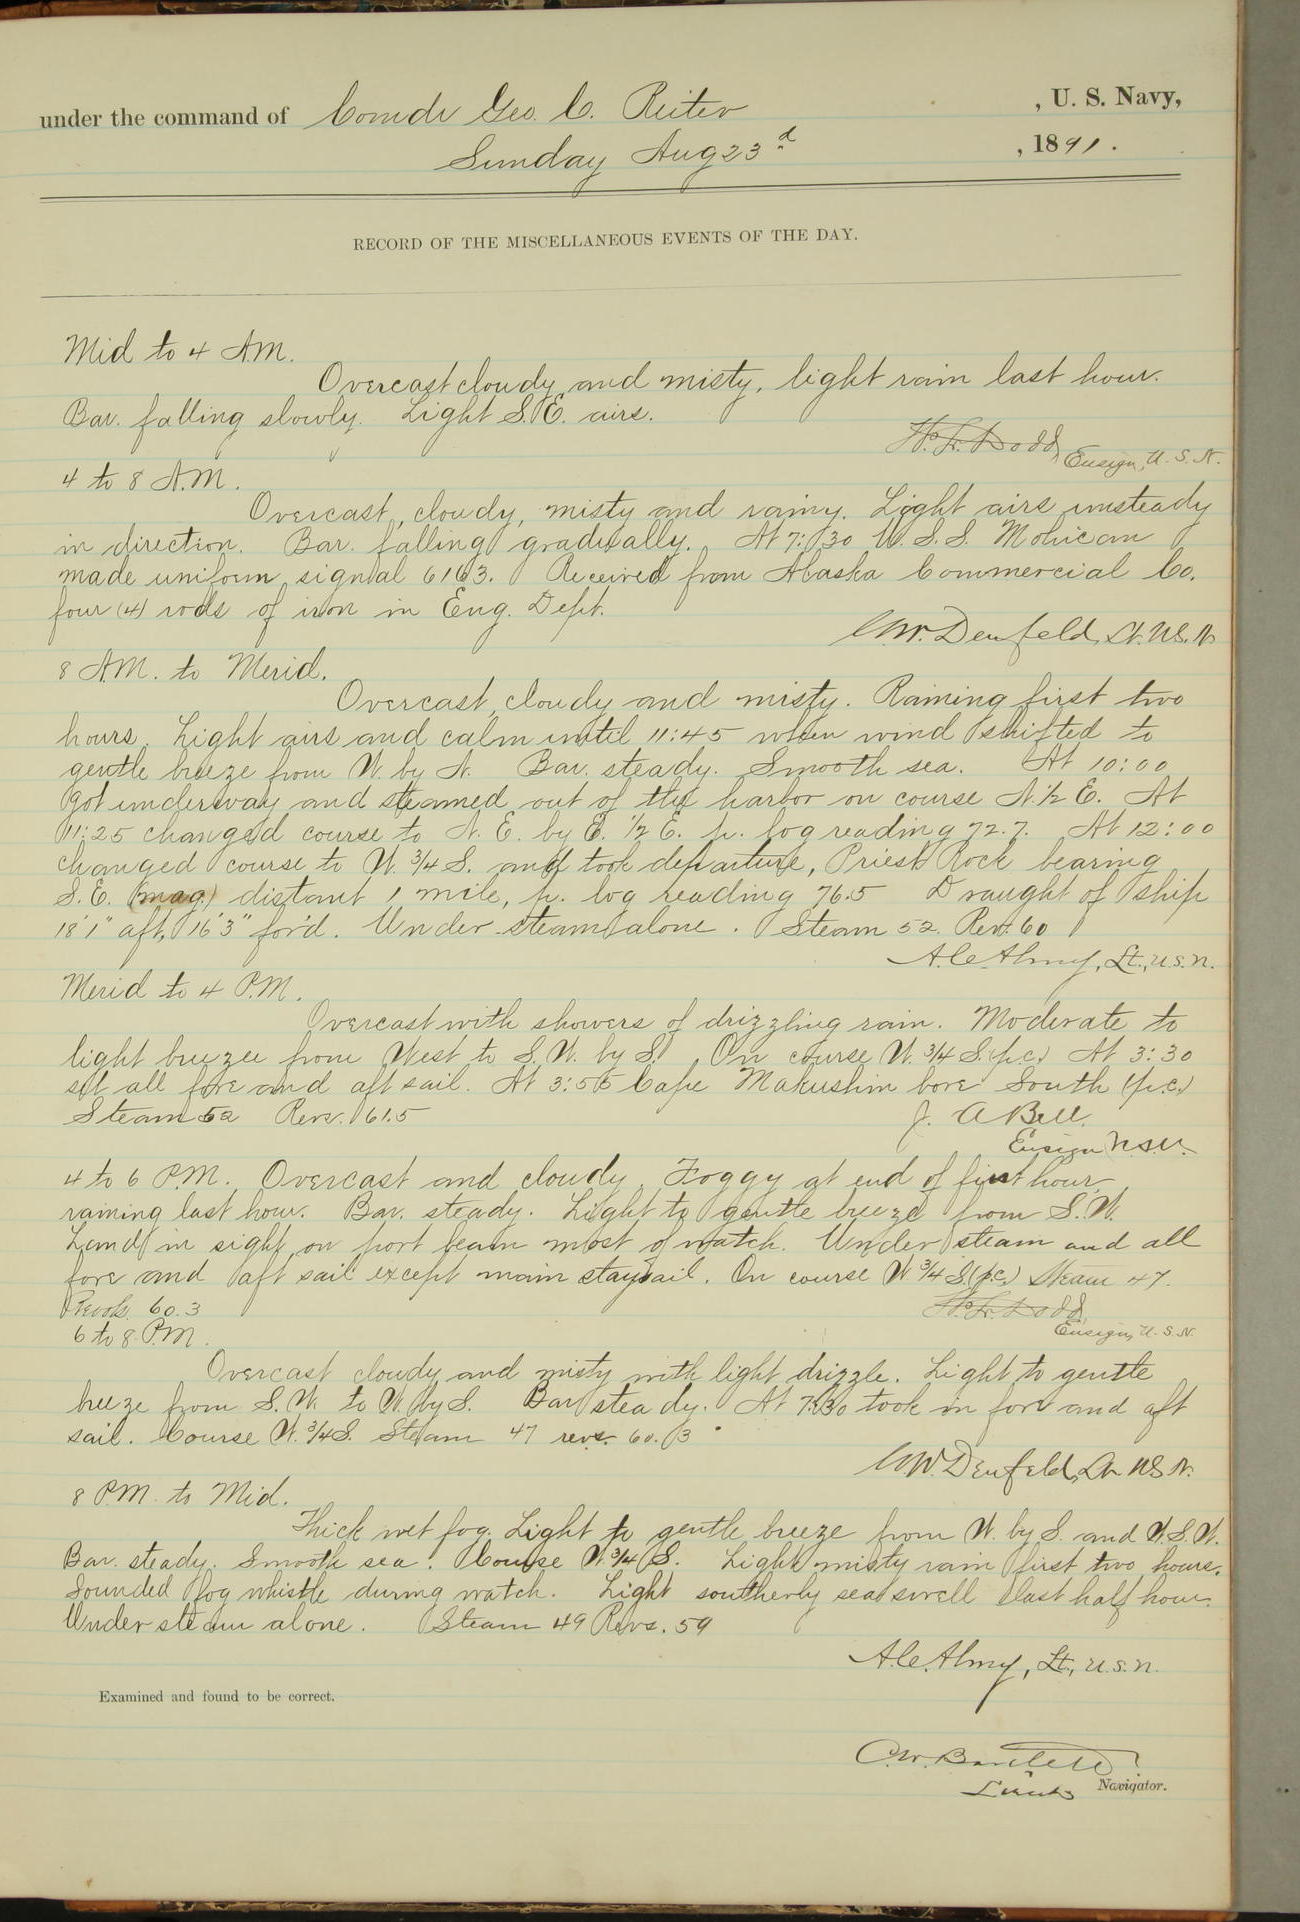 under the command of Comdr Geo. C. Reiter , U. S. Navy,
Sunday Aug 23d , 1891.
RECORD OF THE MISCELLANEOUS EVENTS OF THE DAY.
Mid to 4 A.M.
Overcast cloudy and misty, light rain last hour.
Bar. falling slowly. Light S.E. airs.
Dodd, Ensign, U.S.N.
4 to 8 A.M.
Overcast, cloudy, misty and rainy. Light airs unsteady
in direction. Bar. falling gradually. At 7:30 U.S.S. Mohican
made uniform signal 6163. Received from Alaska Commercial Co.
four (4) rods of iron in Eng. Dept.
Denfeld, Lt. U.S.N.
8 A.M. to Merid.
Overcast, cloudy and misty. Raining first two
hours. Light airs and calm until 11:45 when wind shifted to
gentle breeze from W. by N. Bar. steady. Smooth sea. At 10:00
got underway and steamed out of the harbor on course N. 1/2 E. At
11:25 changed course to N.E. by E. 1/2 E. p. log reading 72.7. At 12:00
changed course to W. 3/4 S. and took departure, Priest Rock bearing
S.E. (mag.) distant 1 mile, p. log reading 76.5 Draught of ship
18'1" aft, 16'3" for'd. Under steam alone. Steam 52 Rev. 60
A.C. Almy, Lt., U.S.N.
Merid to 4 P.M.
Overcast with showers of drizzling rain. Moderate to
light breeze from West to S.W. by S. On course W. 3/4 S. (p.c.) At 3:30
set all fore and aft sail. At 3:55 Cape Makushin bore South (p.c.)
Steam 52 Revs. 61.5
J. A Bell.
Ensign U.S.N.
4 to 6 P.M. Overcast and cloudy. Foggy at end of first hour,
raining last hour. Bar. steady. Light to gentle breeze from S.W.
Land in sight on port beam most of watch. Under steam and all
fore and aft sail except main staysail. On course W 3/4 S. (p.c.) Steam 47.
Revols. 60.3
Dodd,
Ensign, U.S.N.
6 to 8 P.M.
Overcast cloudy and misty with light drizzle. Light to gentle
breeze from S.W. to W. by S. Bar steady. At 7:30 took in fore and aft
sail. Course W. 3/4 S. Steam 47 revs. 60.3
Denfeld, Lt. U.S.N.
8 P.M. to Mid.
Thick wet fog. Light to gentle breeze from W. by S. and W.S.W.
Bar. steady. Smooth sea. Course W. 3/4 S. Light misty rain first two hours.
Sounded fog whistle during watch. Light southerly sea swell last half hour.
Under steam alone. Steam 49 Revs. 59
A.C. Almy, Lt., U.S.N.
Examined and found to be correct.
C.W. Bartlett
Lieut. Navigator.